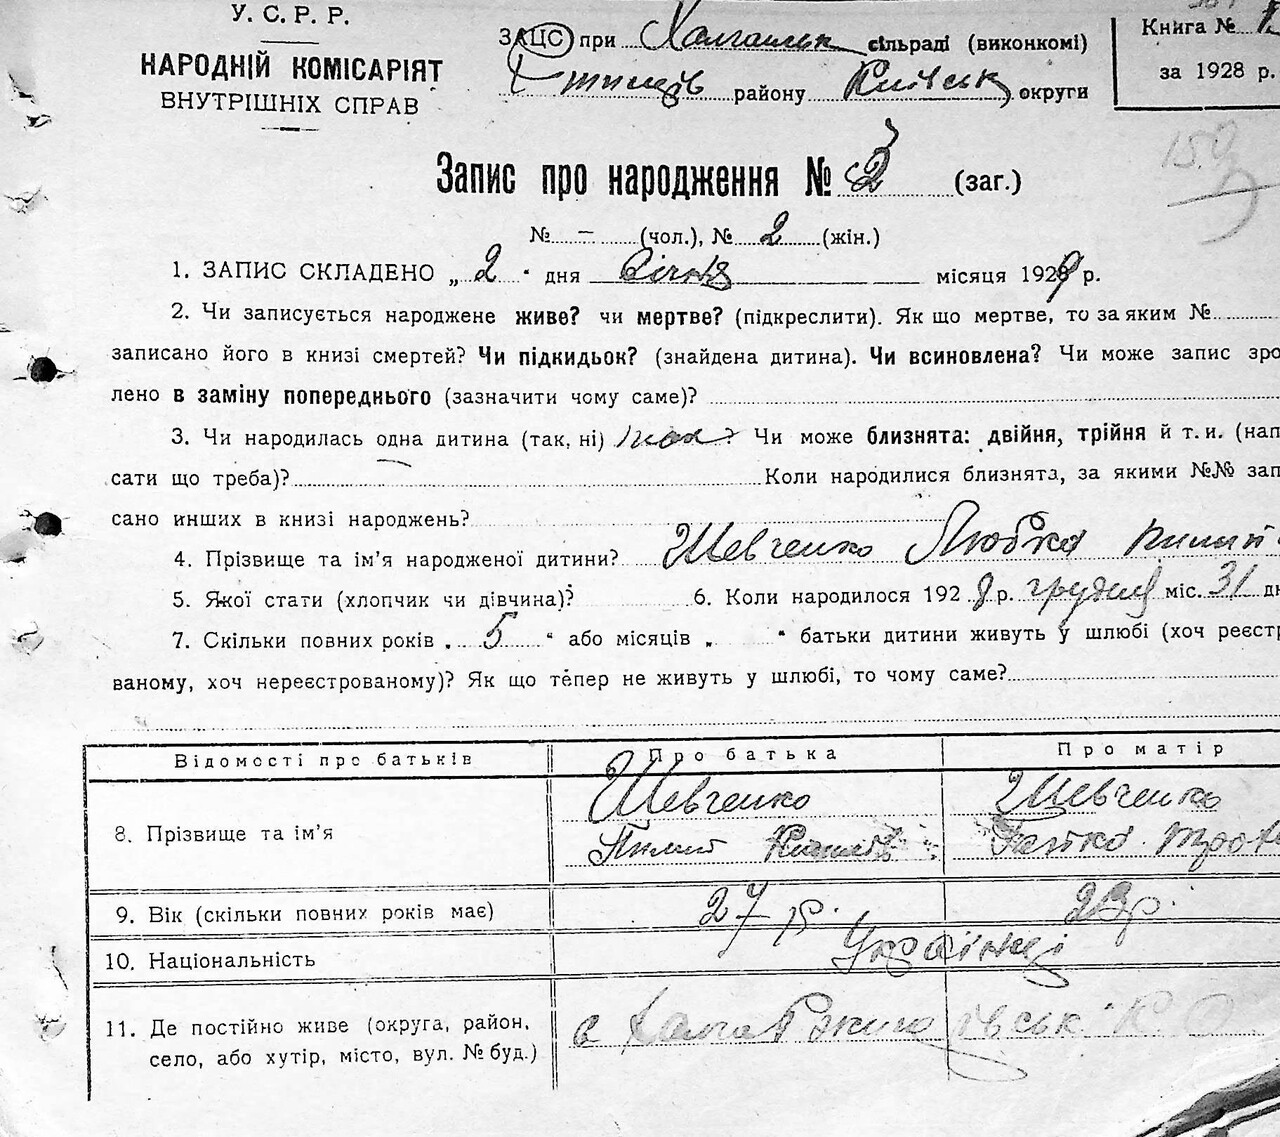 У. С. Р. Р.
НАРОДНІЙ КОМІСАРІЯТ
ВНУТРІШНІХ СПРАВ
ЗАЦС при сільраді (виконкомі)
району Київськ округи
Книга №
за 1928 р.
159
Запис про народження № 2 (заг.)
№ – (чол.), № 2 (жін.)
1. ЗАПИС СКЛАДЕНО „ 2 “ дня Січня місяця 1929 р.
2. Чи записується народжене живе? чи мертве? (підкреслити). Як що мертве, то за яким №
записано його в книзі смертей? Чи підкидьок? (знайдена дитина). Чи всиновлена? Чи може запис зро
лено в заміну попереднього (зазначити чому саме)?
3. Чи народилась одна дитина (так, ні) так? Чи може близнята: двійня, трійня й т. и. (нап
сати що треба)? Коли народилися близнята, за якими №№ зап
сано инших в книзі народжень?
4. Прізвище та ім’я народженої дитини? Шевченко Любка
5. Якої стати (хлопчик чи дівчина)? 6. Коли народилося 1928 р. грудня міс. 31 дн
7. Скільки повних років „ 5 “ або місяців „ “ батьки дитини живуть у шлюбі (хоч реєстр
ваному, хоч нереєстрованому)? Як що тепер не живуть у шлюбі, то чому саме?
Відомості про батьків Про батька Про матір
8. Прізвище та ім’я Шевченко Шевченко
Пилип
9. Вік (скільки повних років має) 27 р. 23 р.
10. Національність Українці
11. Де постійно живе (округа, район,
село, або хутір, місто, вул. № буд.)